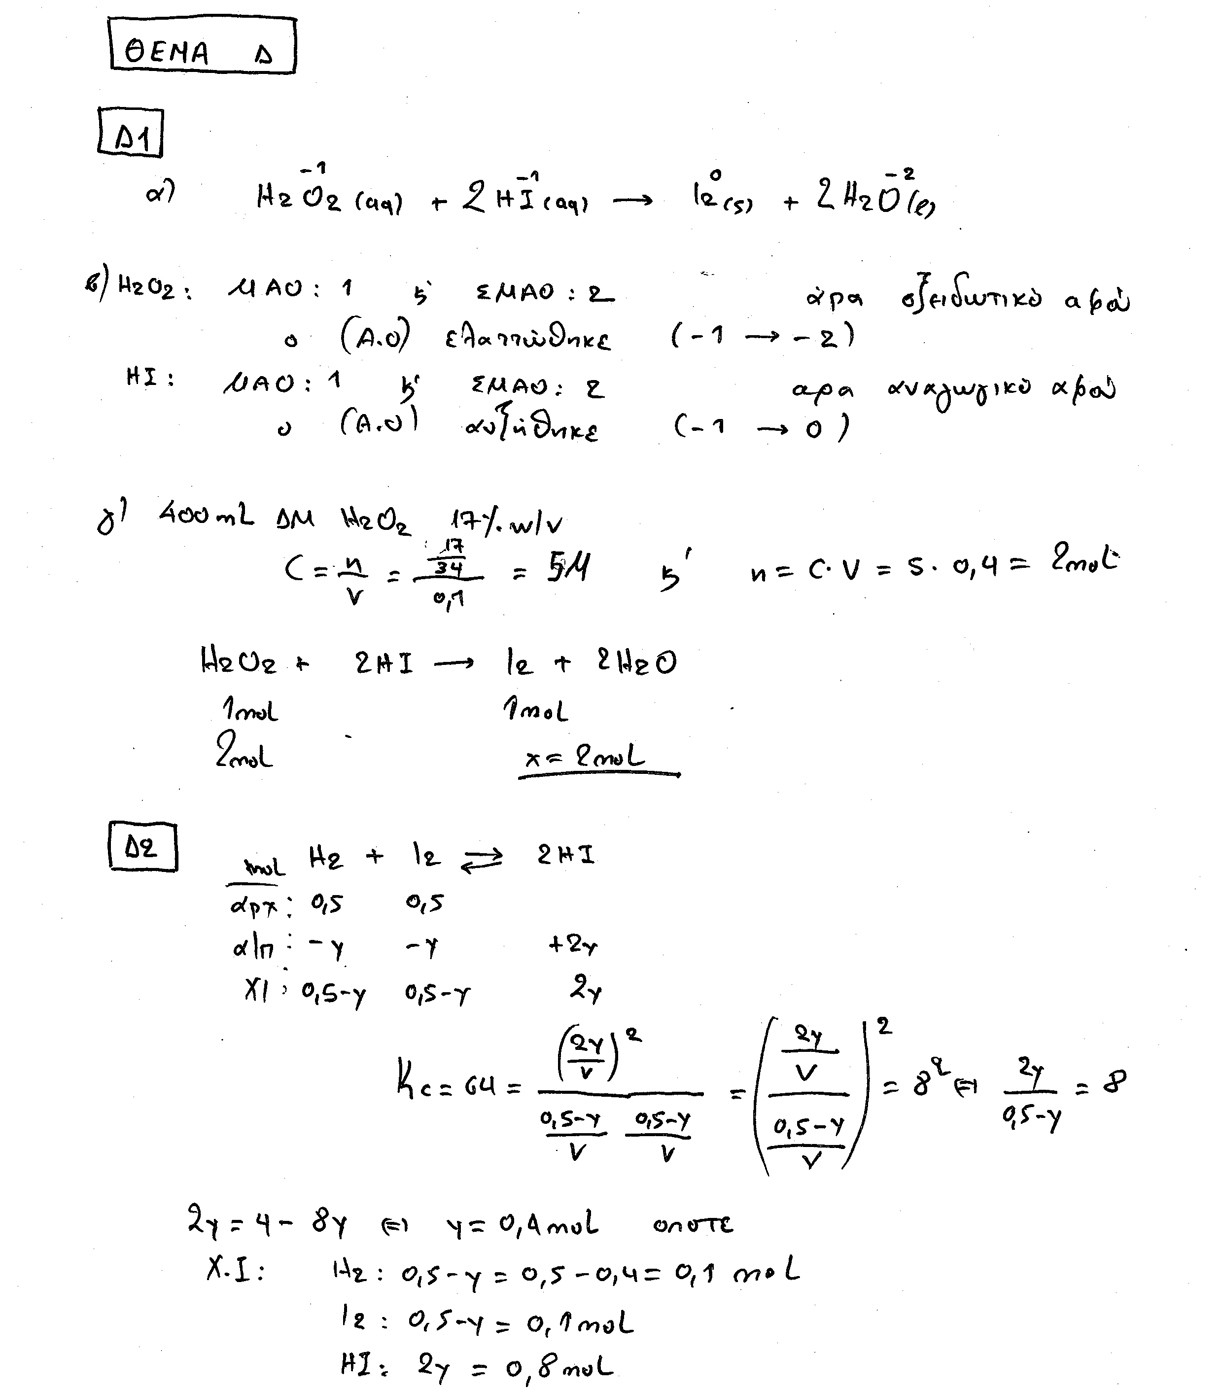 ΘΕΜΑ Δ
Δ1
α) H2O2 (aq) + 2HI (aq) → I2 (s) + 2H2O (l)
-1 -1 0 -2
β) H2O2: ΜΑΟ: 1 κ' ΣΜΑΟ: 2 άρα οξειδωτικό αφού
ο (Α.Ο) ελαττώθηκε (-1 → -2)
HI: ΜΑΟ: 1 κ' ΣΜΑΟ: 2 αρα αναγωγικό αφού
ο (Α.Ο) αυξήθηκε (-1 → 0)
γ) 400mL ΔΜ H2O2 17% w/v
C = n/V = (17/34)/0,1 = 5M κ' n = C·V = 5·0,4 = 2mol
H2O2 + 2HI → I2 + 2H2O
1mol 1mol
2mol x = 2mol
Δ2
mol H2 + I2 ⇄ 2HI
αρχ: 0,5 0,5
α/π: -y -y +2y
ΧΙ: 0,5-y 0,5-y 2y
Kc = 64 = (2y/V)² / ((0,5-y)/V (0,5-y)/V) = ((2y/V) / ((0,5-y)/V))² = 8² ⇔ 2y/(0,5-y) = 8
2y = 4 - 8y ⇔ y = 0,4mol οποτε
Χ.Ι: H2: 0,5-y = 0,5-0,4 = 0,1 mol
I2: 0,5-y = 0,1mol
HI: 2y = 0,8mol